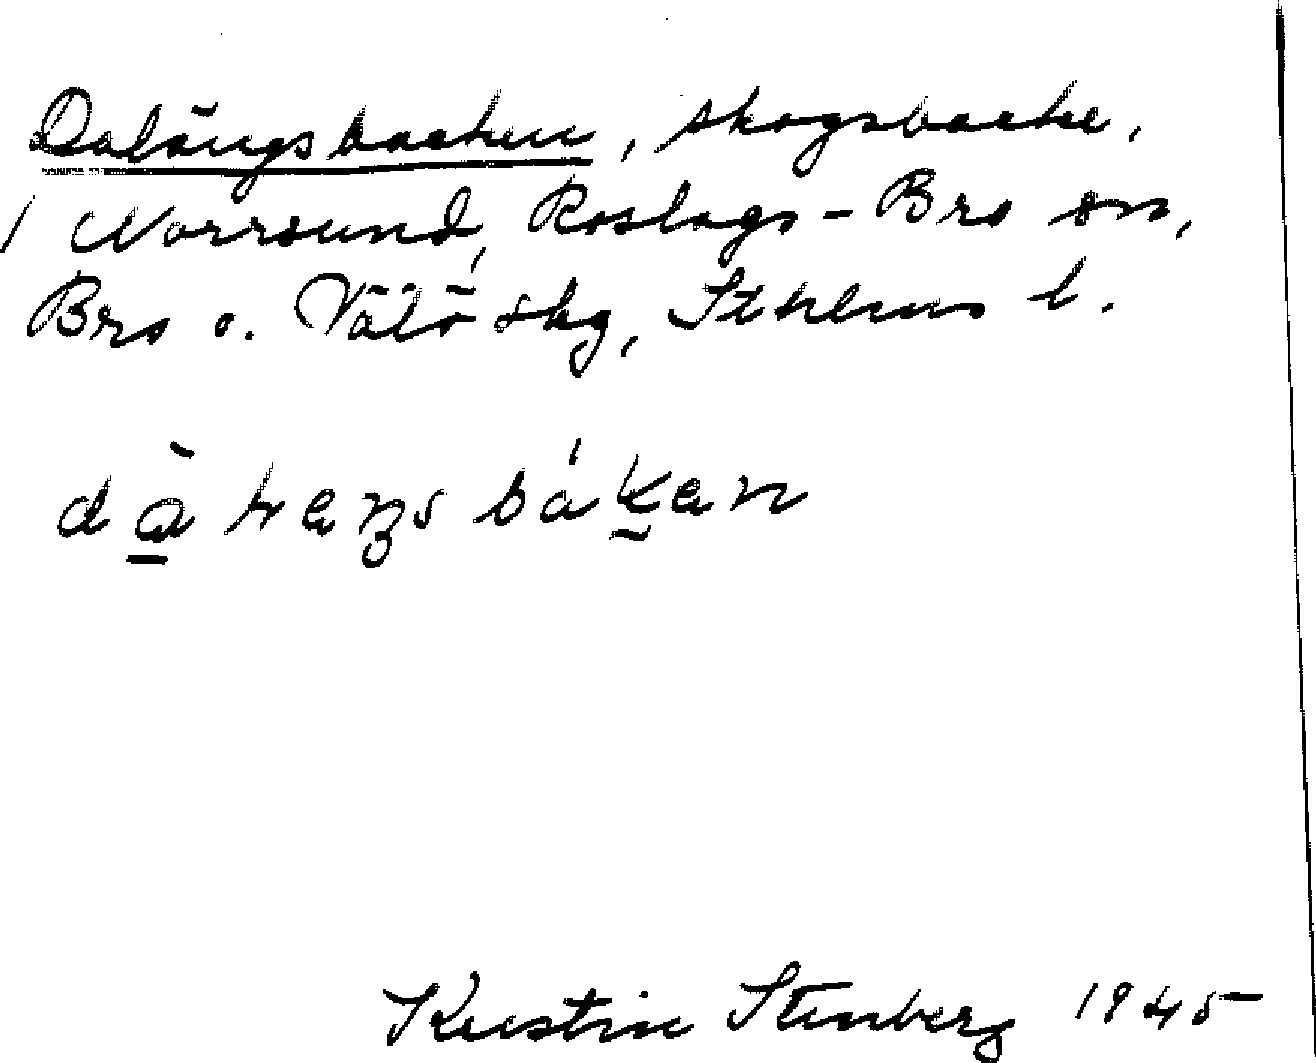 Dalängsbacken, skogsbacke,
/ Norrsund, Roslags-Bro sn,
Bro o. Vätö skg, Sthlms l.
Kerstin Stenberg 1945